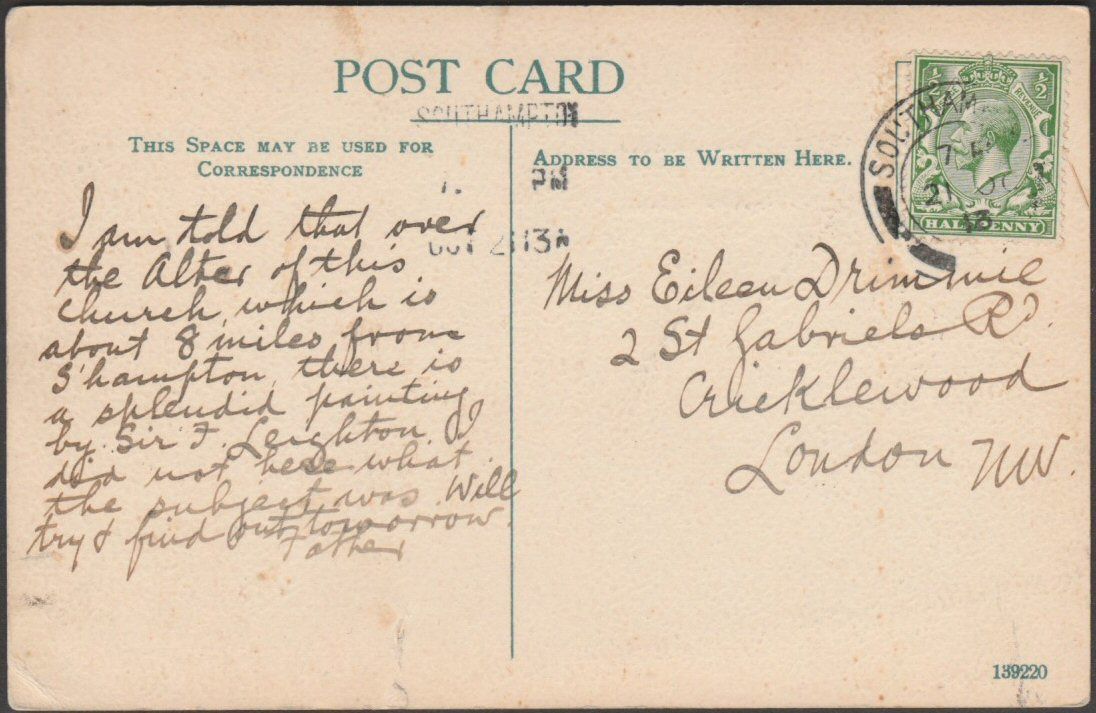 POST CARD
SOUTHAMPTON
THIS SPACE MAY BE USED FOR
CORRESPONDENCE
ADDRESS TO BE WRITTEN HERE.
PM
OCT 21 13
I am told that over
the Alter of this
church, which is
about 8 miles from
S'hampton, there is
a splendid painting
by Sir F. Leighton. I
did not hear what
the subject was. Will
try & find out tomorrow.
Father
Miss Eileen Drimmie
2 St Gabriels Rd.
Cricklewood
London NW.
½ ½
REVENUE
HALFPENNY
SOUTHAM
7
21 OC
13
139220